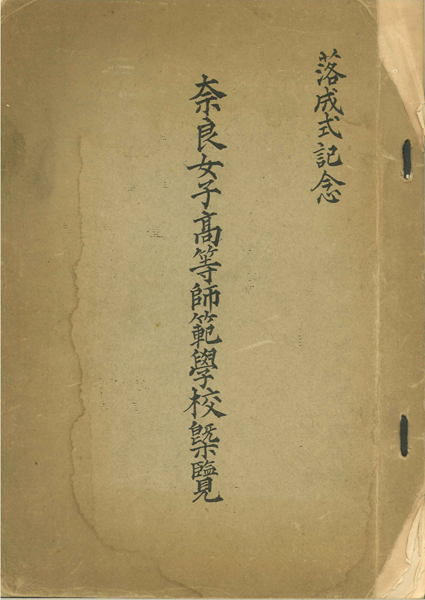 落成式記念
奈良女子高等師範學校槩覽